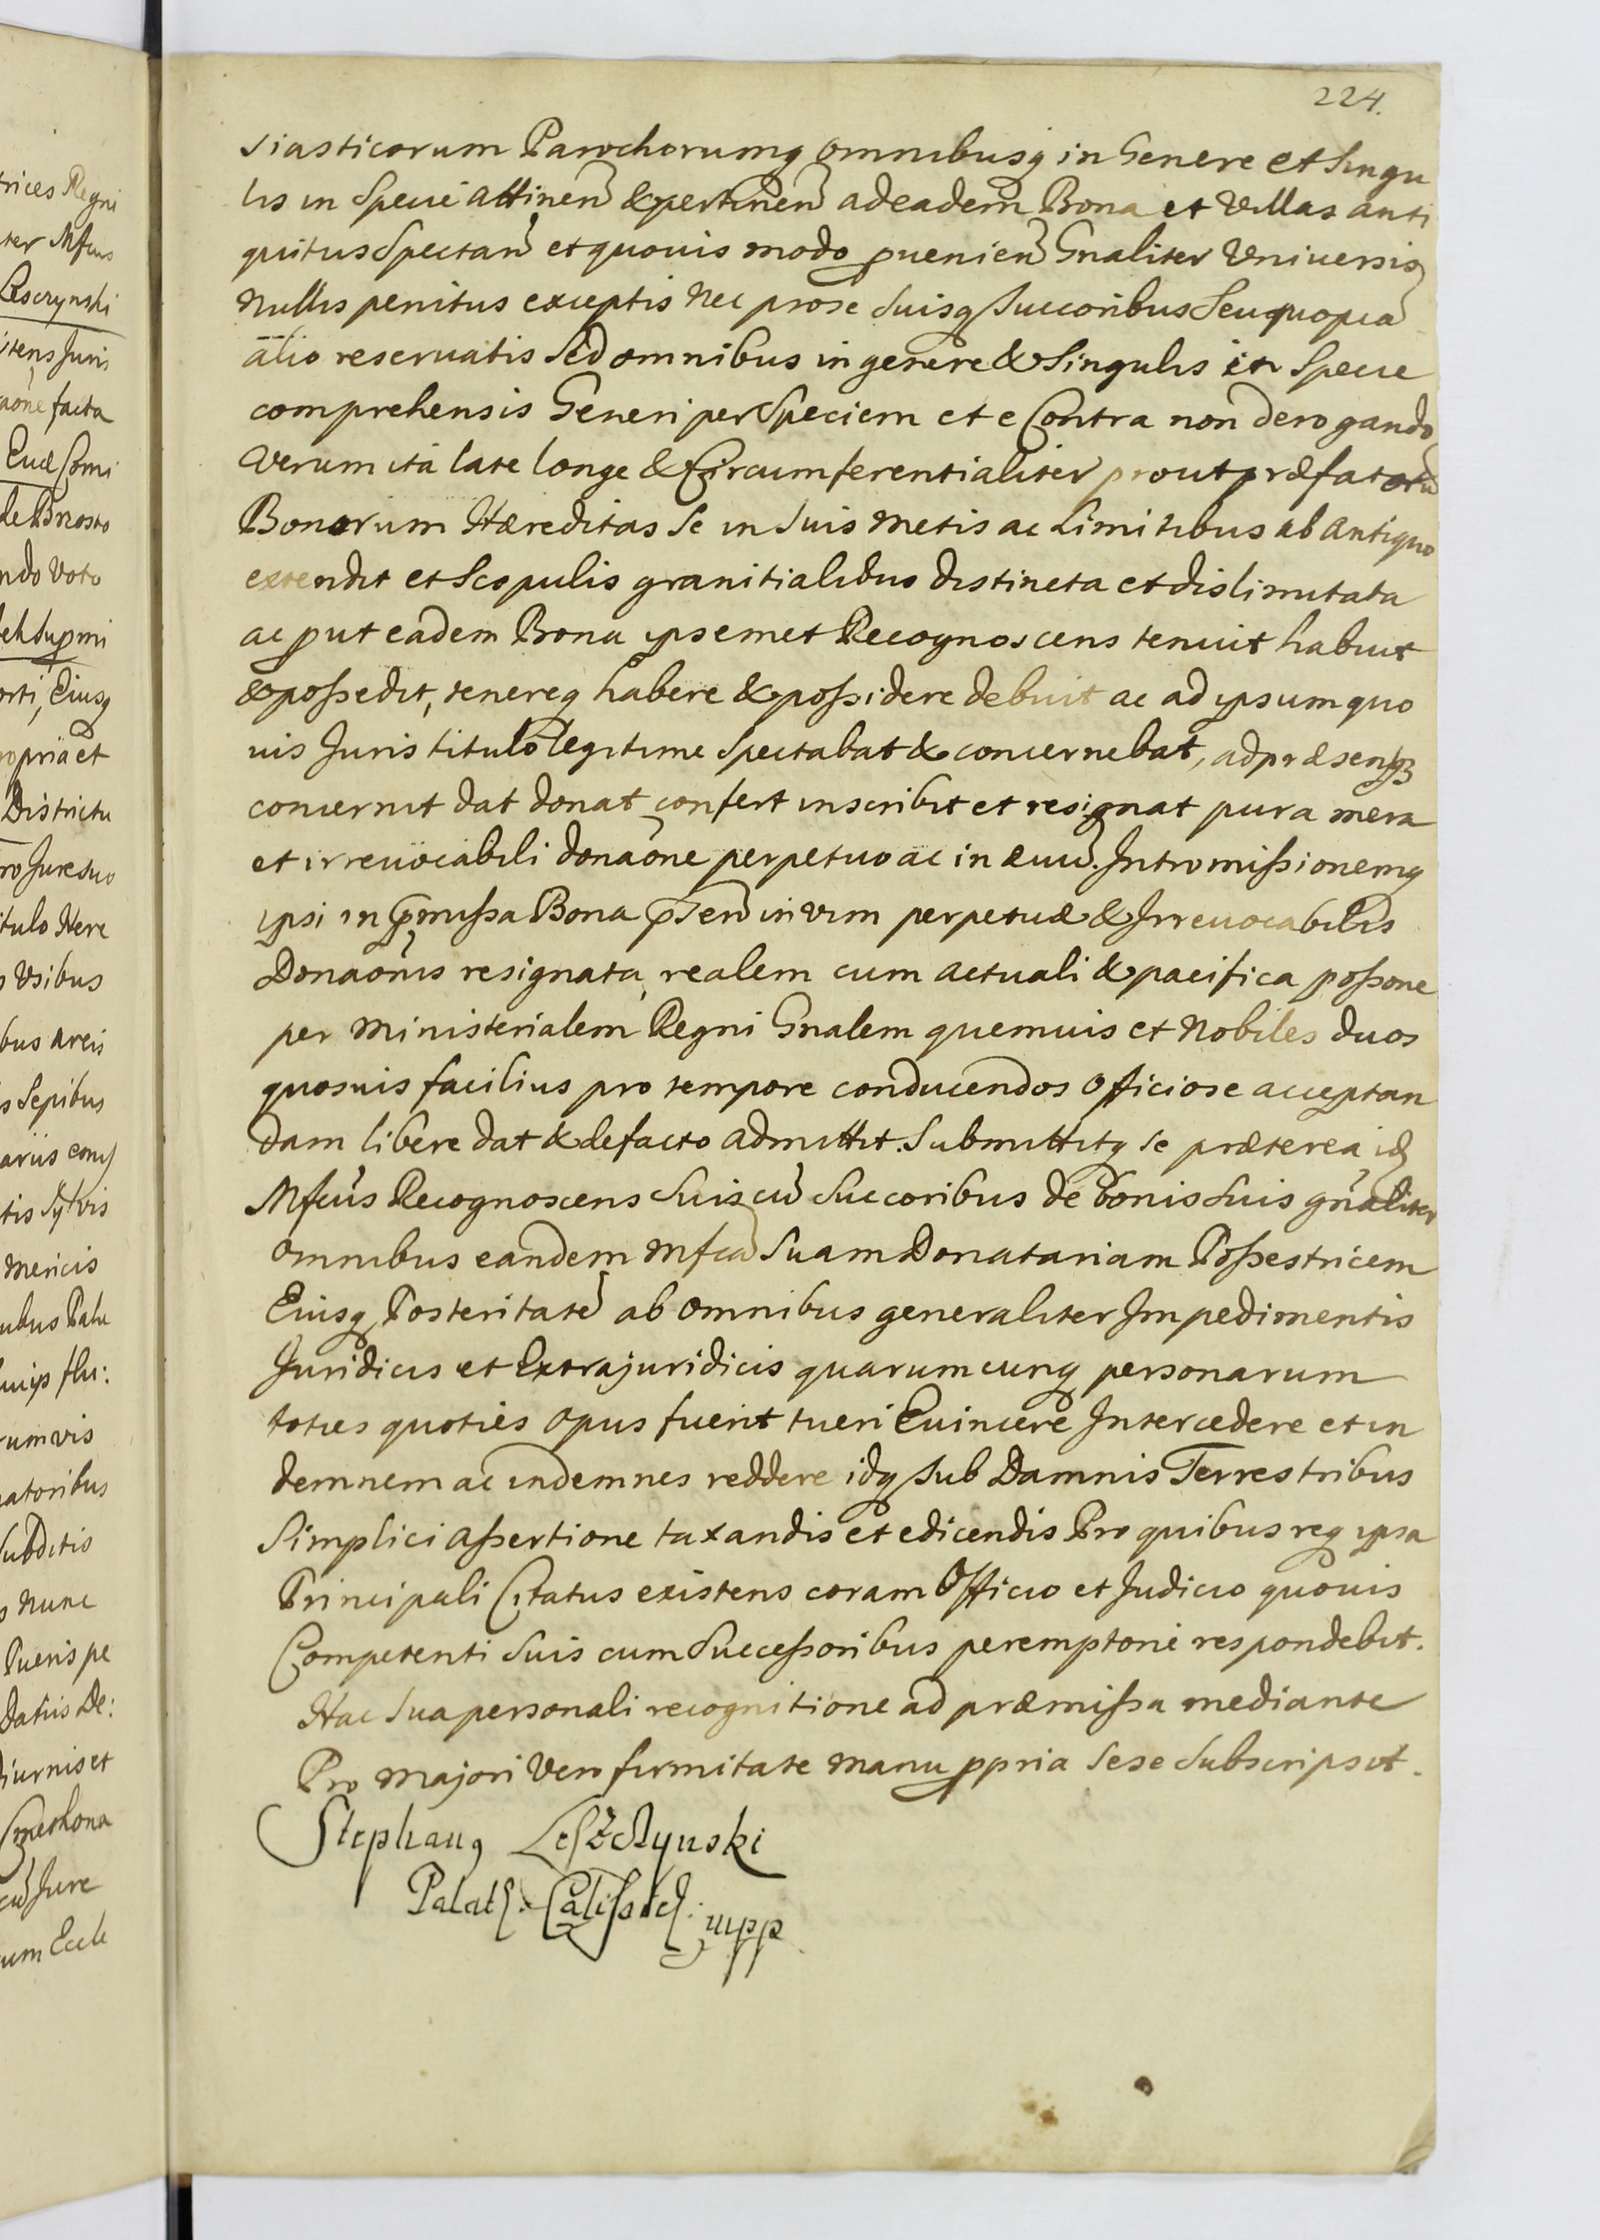 224.
siasticorum Parochorumq omnibusq in Genere et Singu
lis in Specie attinen & pertinen ad eadem Bona et Villas anti
quitus Spectan et quouis modo puenien Gnaliter Vniuersis
Nullis penitus exceptis Nec pro se Suisq Succoribus Seu quopia
alio reseruatis Sed omnibus in genere & Singulis in Specie
comprehensis Generi per Speciem et e Contra non derogando
Verum ita late longe & Circumferentialiter prout præfatoru
Bonorum Hæreditas Se in Suis Metis ac Limitibus ab Antiquo
extendit et Scopulis granitialibus distincta et dislimitata
ac put eadem Bona ipsemet Recognoscens tenuit habuit
& possedit, tenereq habere & possidere debuit ac ad ipsum quo
uis Juris titulo legitime Spectabat & concernebat, ad præsensq
concernit dat donat confert inscribit et resignat pura mera
et irreuocabili donaone perpetuo ac in æuu. Intromissionemq
ipsi in pmissa Bona psen in vim perpetuæ & Irreuocabilis
Donaonis resignata realem cum actuali & pacifica possone
per Ministerialem Regni Gnalem quemuis et Nobiles duos
quosuis facilius pro tempore conducendos Officiose acceptan
dam libere dat & de facto admittit. Submittitq se præterea id
Mfcus Recognoscens Suis cu Succoribus de bonis Suis gnaliter
Omnibus eandem Mfca Suam Donatariam Possestricem
Eiusq Posteritate ab omnibus generaliter Impedimentis
Juridicis et Extrajuridicis quarumcunq personarum
toties quoties opus fuerit tueri Euincere Intercedere et in
demnem ac indemnes reddere idq sub Damnis Terrestribus
Simplici assertione taxandis et edicendis Pro quibus req ipsa
Principali Citatus existens coram Officio et Judicio quouis
Competenti Suis cum Successoribus peremptorie respondebit.
Hac Sua personali recognitione ad præmissa mediante
Pro Majori Vero firmitate Manu ppria Sese Subscripsit.
Stephanq Leszczynski
Palat. Calissien. mpp